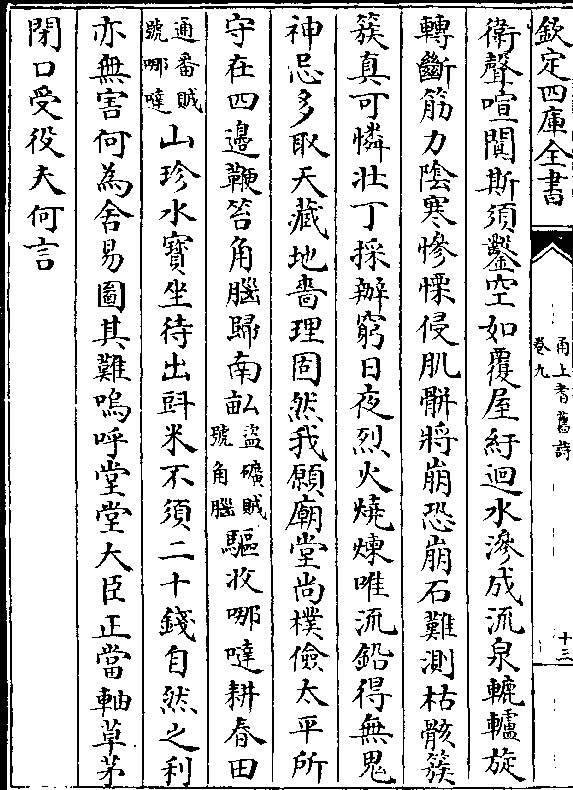 欽定四庫全書
甬上耆舊詩
卷九
十三
衛聲喧闐斯須鑿空如覆屋紆迴水滲成流泉轆轤旋
轉斷筋力陰寒慘慄侵肌骿將崩恐崩石難測枯骸簇
簇真可憐壯丁採辦窮日夜烈火燒煉唯流鉛得無鬼
神忌多取天藏地嗇理固然我願廟堂尚樸儉太平所
守在四邊鞭笞角腦歸南畝盜礦賊號角腦驅收哪噠耕春田
通番賊號哪噠山珍水寶坐待出斗米不須二十錢自然之利
亦無害何為舍易圖其難嗚呼堂堂大臣正當軸草茅
閉口受役夫何言